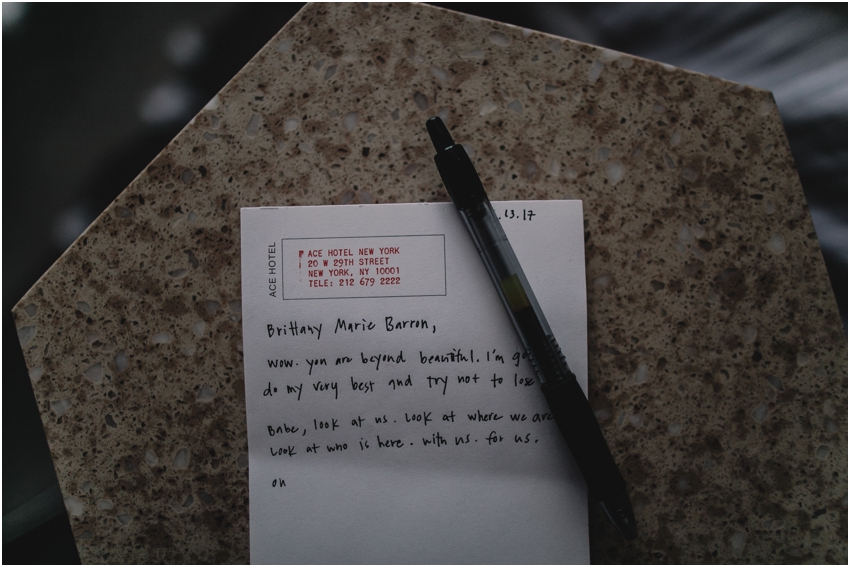 .13.17
ACE HOTEL
ACE HOTEL NEW YORK
20 W 29TH STREET
NEW YORK, NY 10001
TELE: 212 679 2222
Brittany Marie Barron,
wow. you are beyond beautiful. I'm
do my very best and try not to lose
Babe, look at us. Look at where we are
Look at who is here. with us. for us.
on